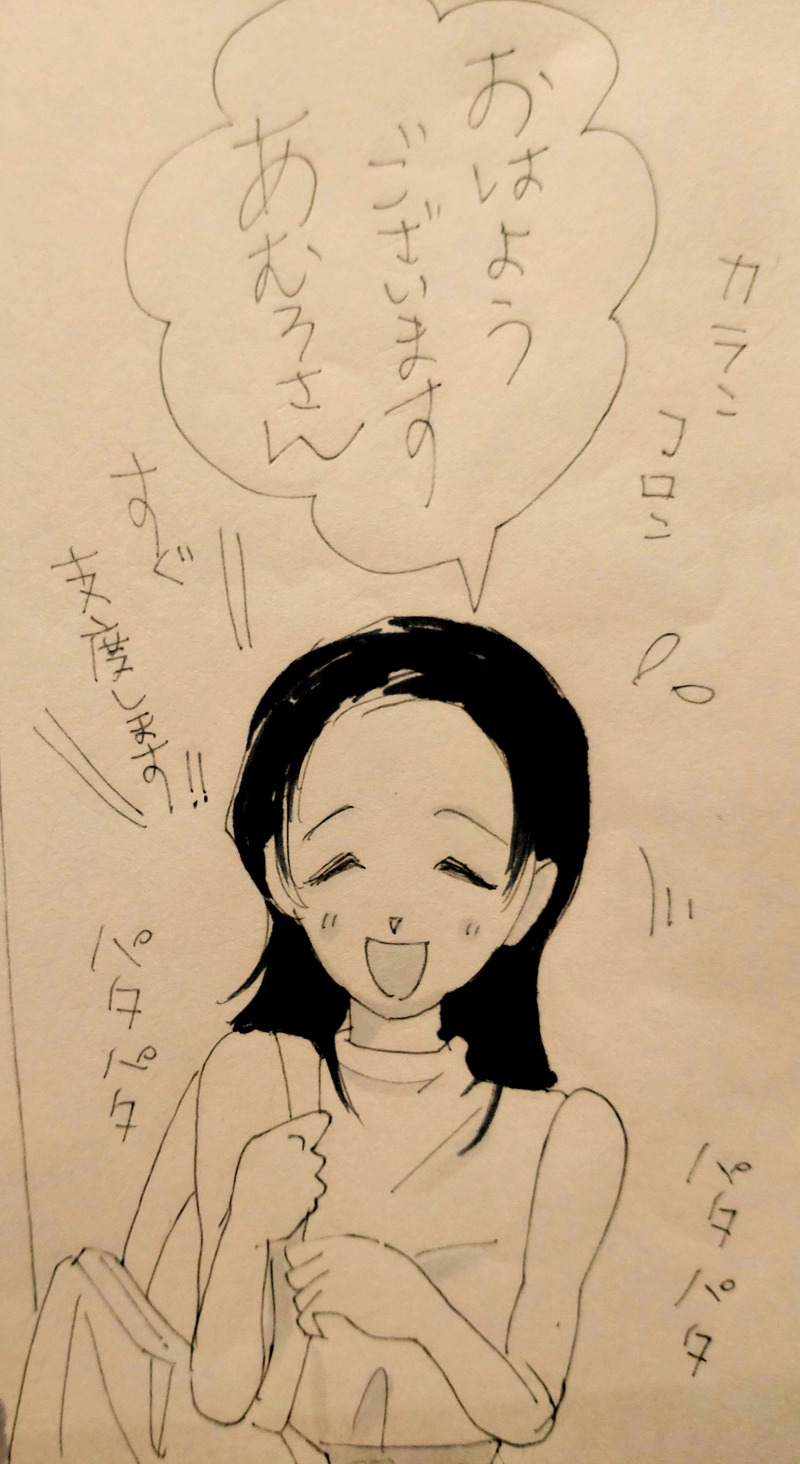 おはよう
ございます
あむろさん
カラン
コロン
すぐ
支度します!!
パタパタ
パタパタ